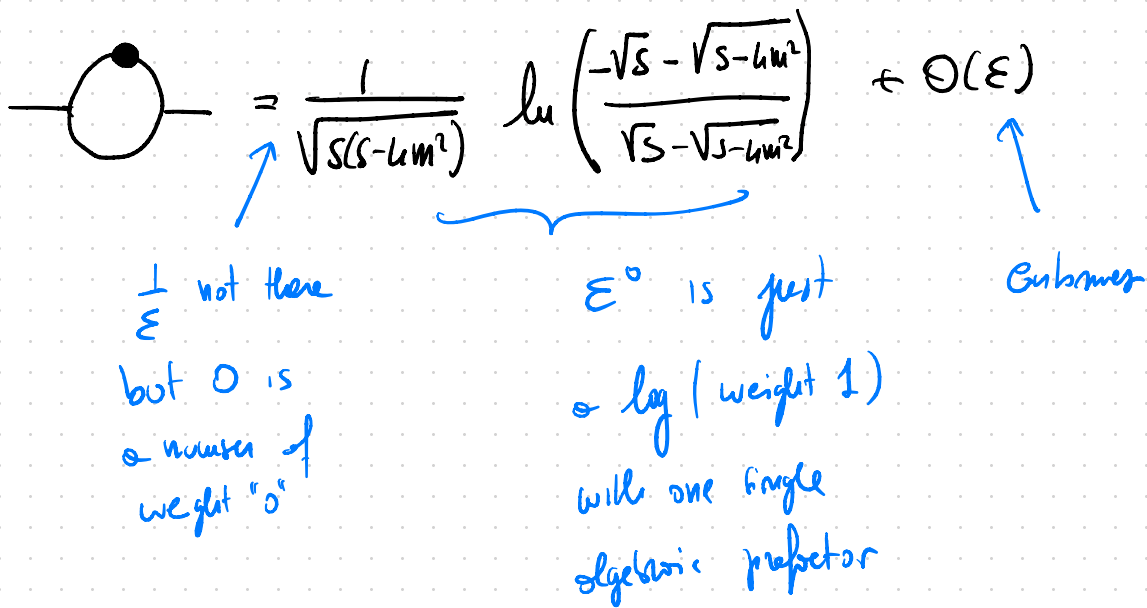 = 1/√(s(s-4m²)) ln((-√s - √(s-4m²))/(√s - √(s-4m²))) + O(ε)
1/ε not there
but 0 is
a number of
weight "0"
ε⁰ is just
a log (weight 1)
with one single
algebraic prefactor